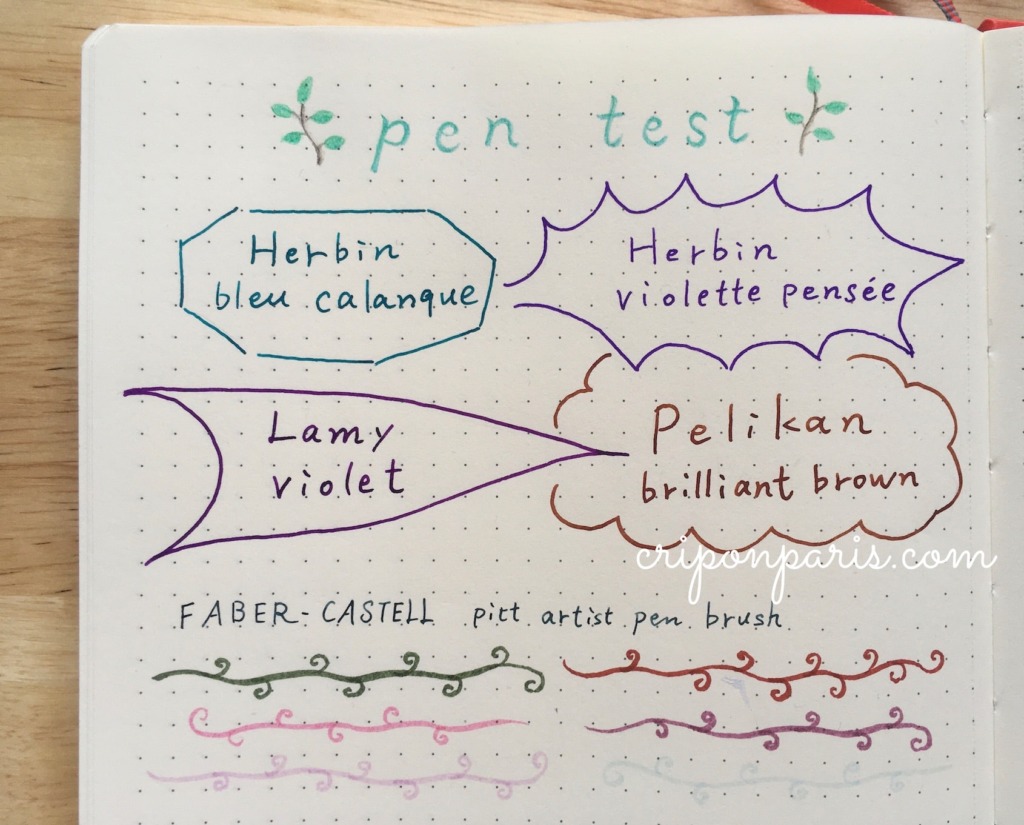 pen test
Herbin
bleu calanque
Herbin
violette pensée
Lamy
violet
Pelikan
brilliant brown
criponparis.com
FABER-CASTELL pitt artist pen brush